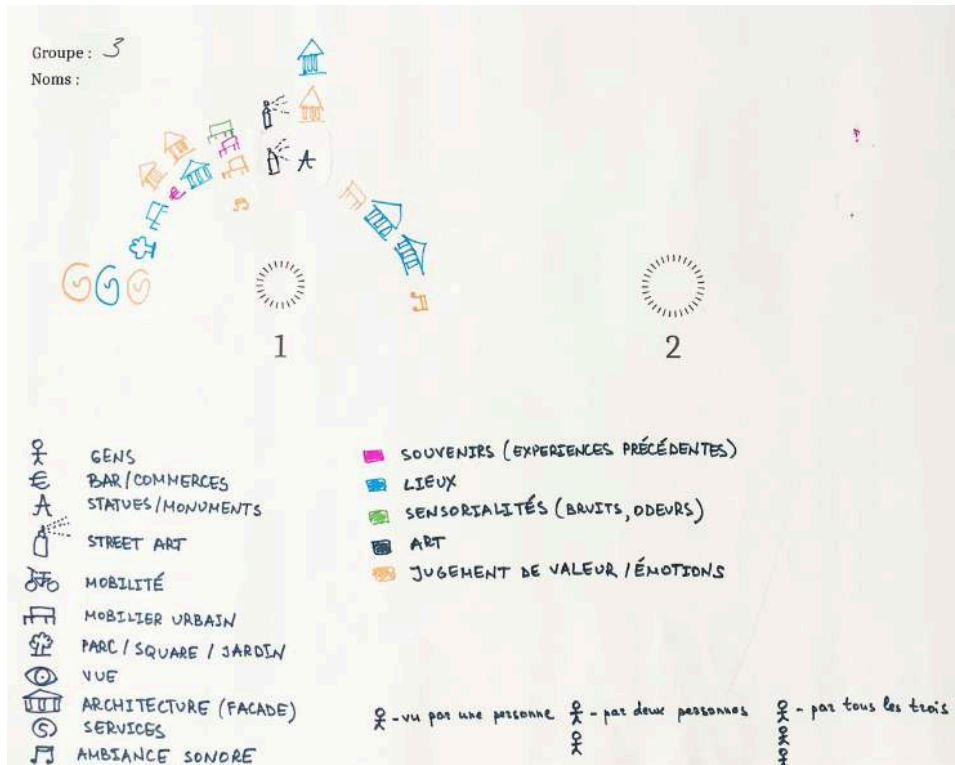 Groupe : 3
Noms :
1
2
GENS
BAR/COMMERCES
STATUES/MONUMENTS
STREET ART
MOBILITÉ
MOBILIER URBAIN
PARC/SQUARE/JARDIN
VUE
ARCHITECTURE (FACADE)
SERVICES
AMBIANCE SONORE
SOUVENIRS (EXPERIENCES PRÉCÉDENTES)
LIEUX
SENSORIALITÉS (BRUITS, ODEURS)
ART
JUGEMENT DE VALEUR/ÉMOTIONS
- vu par une personne
- par deux personnes
- par tous les trois